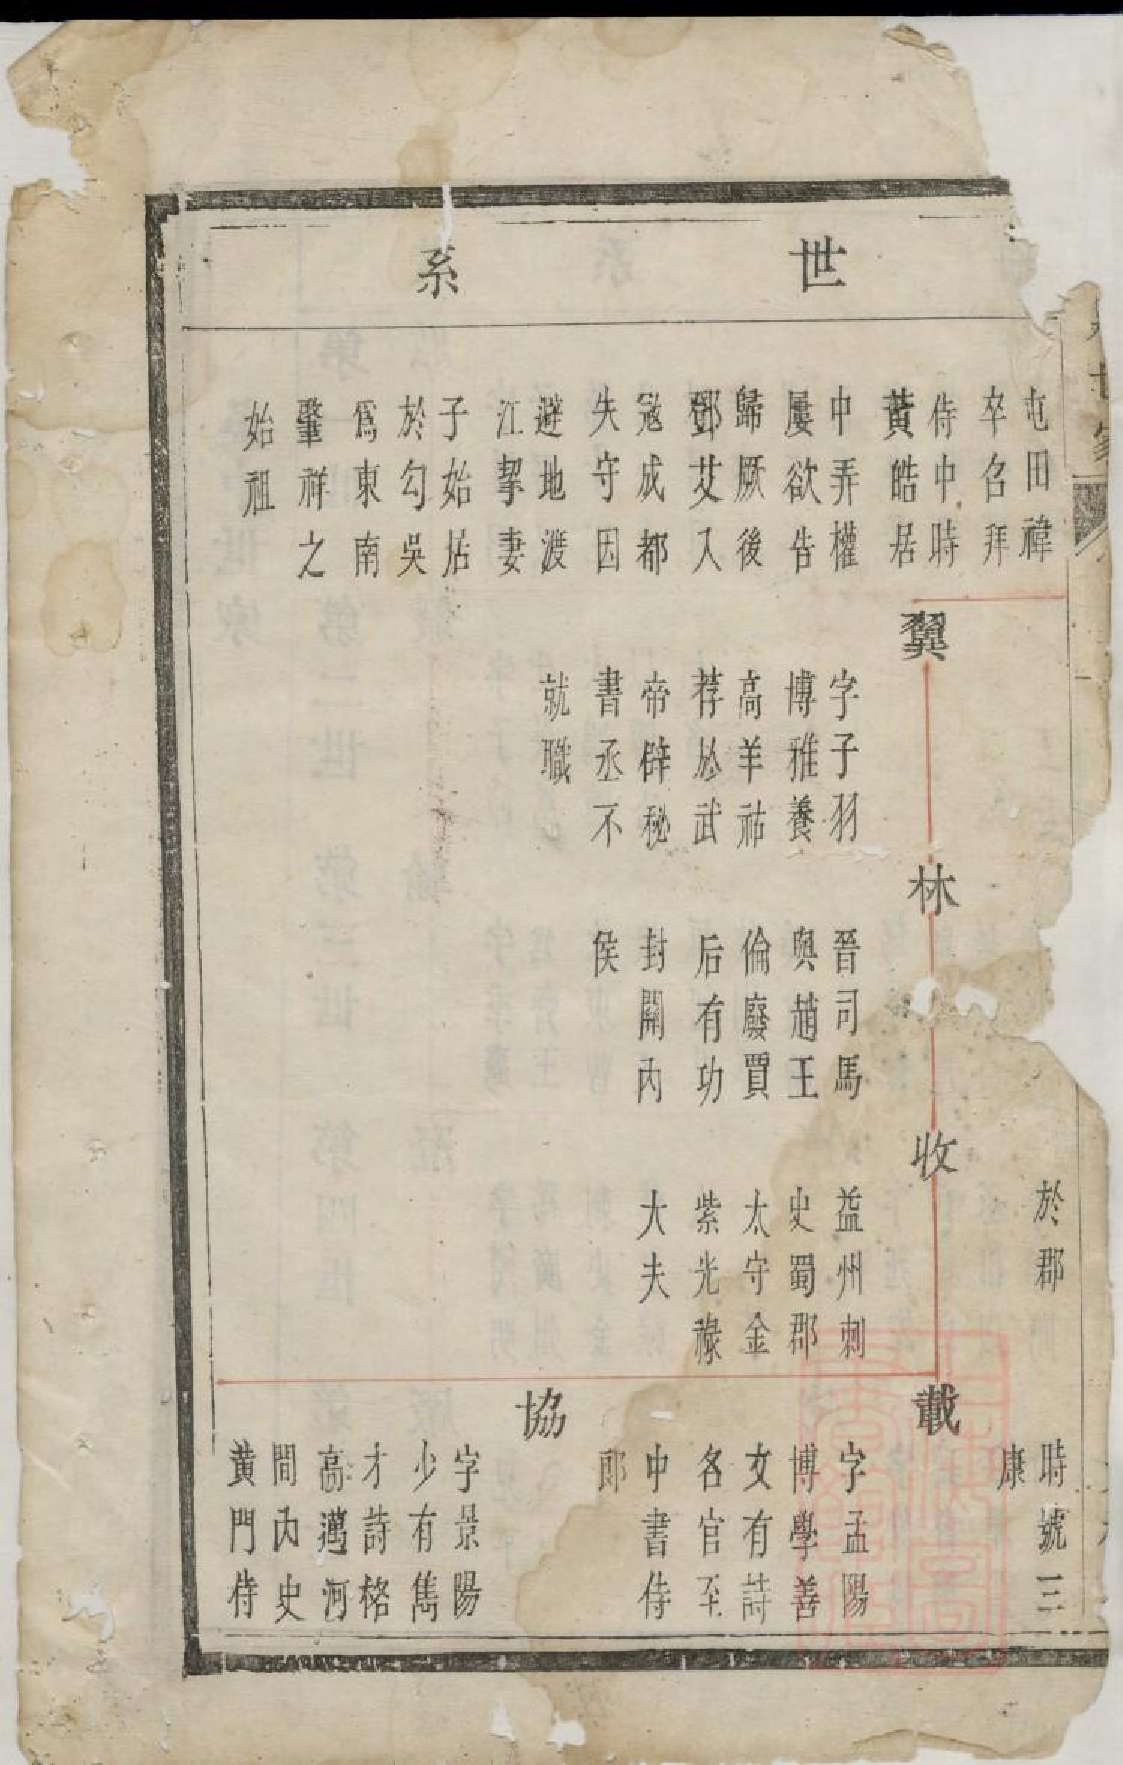 世系
屯田禕
卒召拜
侍中時
黃皓居
中弄權
屢欲告
歸厥後
鄧艾入
寇成都
失守因
避地渡
江挈妻
子始居
於勾吳
爲東南
肇祥之
始祖
翼
字子羽
博雅養
高羊祜
荐於武
帝辟秘
書丞不
就職
林
晉司馬
與趙王
倫廢賈
后有功
封關內
侯
於郡
收
益州刺
史蜀郡
太守金
紫光祿
大夫
時號三
康
載
字孟陽
博學善
文有詩
名官至
中書侍
郎
協
字景陽
少有雋
才詩格
高邁河
間內史
黃門侍